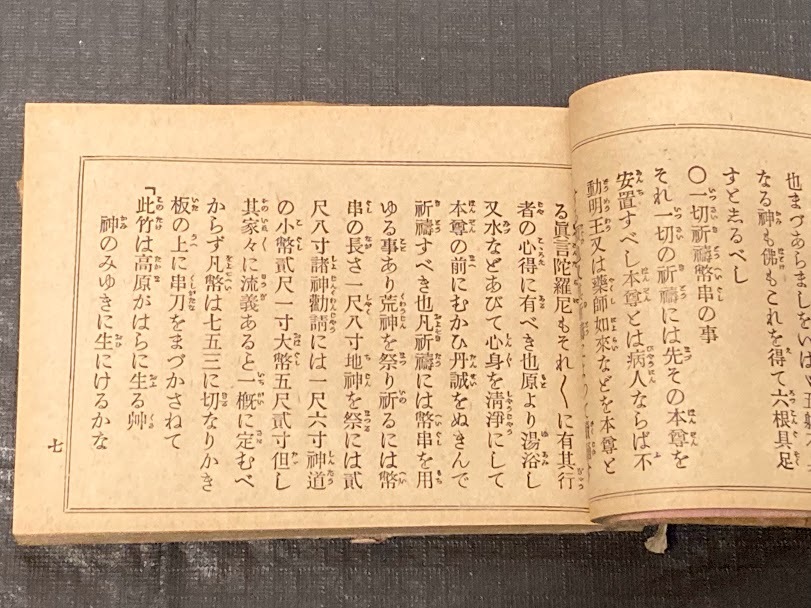 也まづあらましをいはゞ五躰
なる神も佛もこれを得て六根具足
すと志るべし
〇一切祈禱幣串の事
それ一切の祈禱には先その本尊を
安置すべし本尊とは病人ならば不
動明王又は薬師如來などを本尊と
る眞言陀羅尼もそれ〳〵に有其行
者の心得に有べき也原より湯浴し
又水などあびて心身を淸淨にして
本尊の前にむかひ丹誠をぬきんで
祈禱すべき也凡祈禱には幣串を用
ゆる事あり荒神を祭り祈るには幣
串の長さ一尺八寸地神を祭には貳
尺八寸諸神勸請には一尺六寸神道
の小幣貳尺一寸大幣五尺貳寸但し
其家々に流義あると一槪に定むべ
からず凡幣は七五三に切なりかき
板の上に串刀をまづかさねて
「此竹は高原がはらに生る艸
神のみゆきに生にけるかな
七